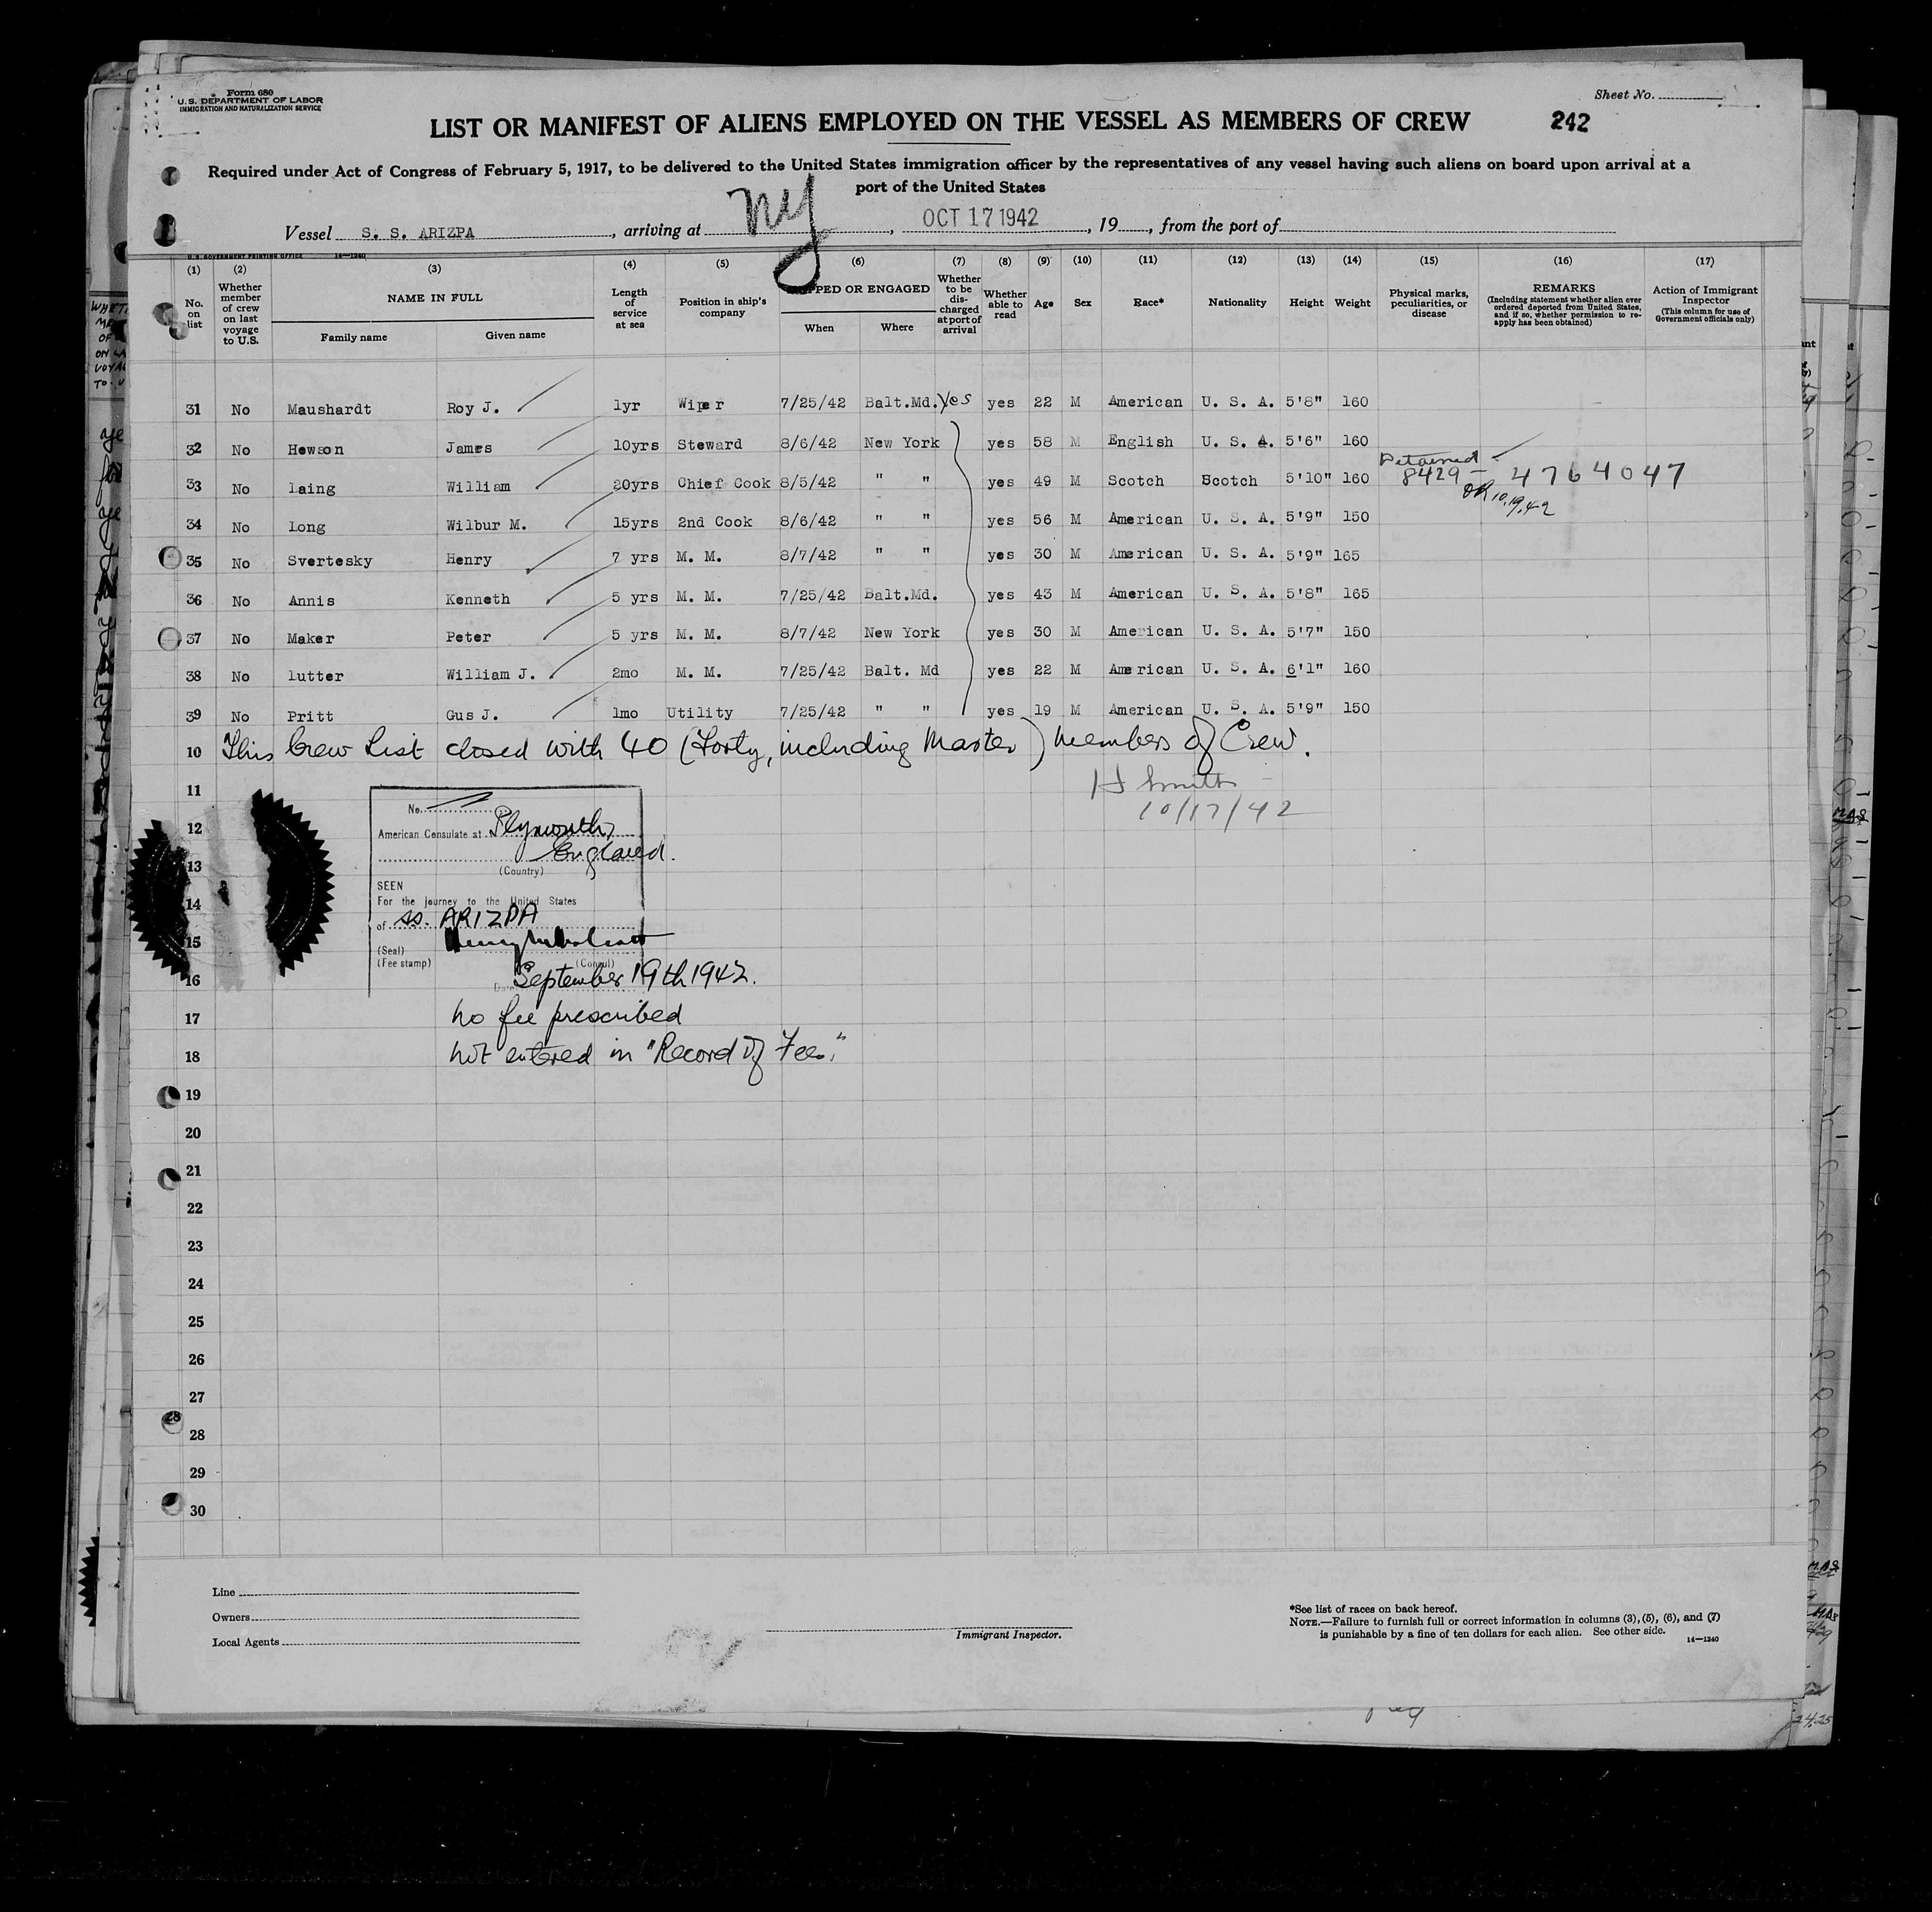 Form 680
U.S. DEPARTMENT OF LABOR
IMMIGRATION AND NATURALIZATION SERVICE
Sheet No.
LIST OR MANIFEST OF ALIENS EMPLOYED ON THE VESSEL AS MEMBERS OF CREW 242
Required under Act of Congress of February 5, 1917, to be delivered to the United States immigration officer by the representatives of any vessel having such aliens on board upon arrival at a
port of the United States
Vessel S. S. ARIZPA, arriving at NY, OCT 17 1942, 19, from the port of
U.S. GOVERNMENT PRINTING OFFICE 14—1240
(1) (2) (3) (4) (5) (6) (7) (8) (9) (10) (11) (12) (13) (14) (15) (16) (17)
No. on list
Whether member of crew on last voyage to U.S.
NAME IN FULL
Family name Given name
Length of service at sea
Position in ship's company
SHIPPED OR ENGAGED
When Where
Whether to be discharged at port of arrival
Whether able to read
Age
Sex
Race*
Nationality
Height
Weight
Physical marks, peculiarities, or disease
REMARKS
(Including statement whether alien ever ordered deported from United States, and if so, whether permission to reapply has been obtained)
Action of Immigrant Inspector
(This column for use of Government officials only)
31 No Maushardt Roy J. 1yr Wiper 7/25/42 Balt.Md. Yes yes 22 M American U. S. A. 5'8" 160
32 No Hewson James 10yrs Steward 8/6/42 New York yes 58 M English U. S. A. 5'6" 160
33 No laing William 20yrs Chief Cook 8/5/42 " " yes 49 M Scotch Scotch 5'10" 160 Detained 8429 – 4764047
OR 10.19.42
34 No long Wilbur M. 15yrs 2nd Cook 8/6/42 " " yes 56 M American U. S. A. 5'9" 150
35 No Svertesky Henry 7 yrs M. M. 8/7/42 " " yes 30 M American U. S. A. 5'9" 165
36 No Annis Kenneth 5 yrs M. M. 7/25/42 Balt.Md. yes 43 M American U. S. A. 5'8" 165
37 No Maker Peter 5 yrs M. M. 8/7/42 New York yes 30 M American U. S. A. 5'7" 150
38 No lutter William J. 2mo M. M. 7/25/42 Balt. Md yes 22 M American U. S. A. 6'1" 160
39 No Pritt Gus J. 1mo Utility 7/25/42 " " yes 19 M American U. S. A. 5'9" 150
10 This Crew List closed with 40 (Forty, including Master) members of Crew.
11 H Smith
10/17/42
No.
American Consulate at Plymouth,
12
England.
13
(Country)
SEEN
For the journey to the United States
14
of ss. ARIZPA
15
(Seal)
(Fee stamp) (Consul)
16
Date September 19th 1942.
17 No fee prescribed
18 Not entered in "Record of Fees."
19
20
21
22
23
24
25
26
27
28
28
29
30
Line
Owners
Local Agents
Immigrant Inspector.
*See list of races on back hereof.
NOTE.—Failure to furnish full or correct information in columns (3), (5), (6), and (7)
is punishable by a fine of ten dollars for each alien. See other side.
14—1240